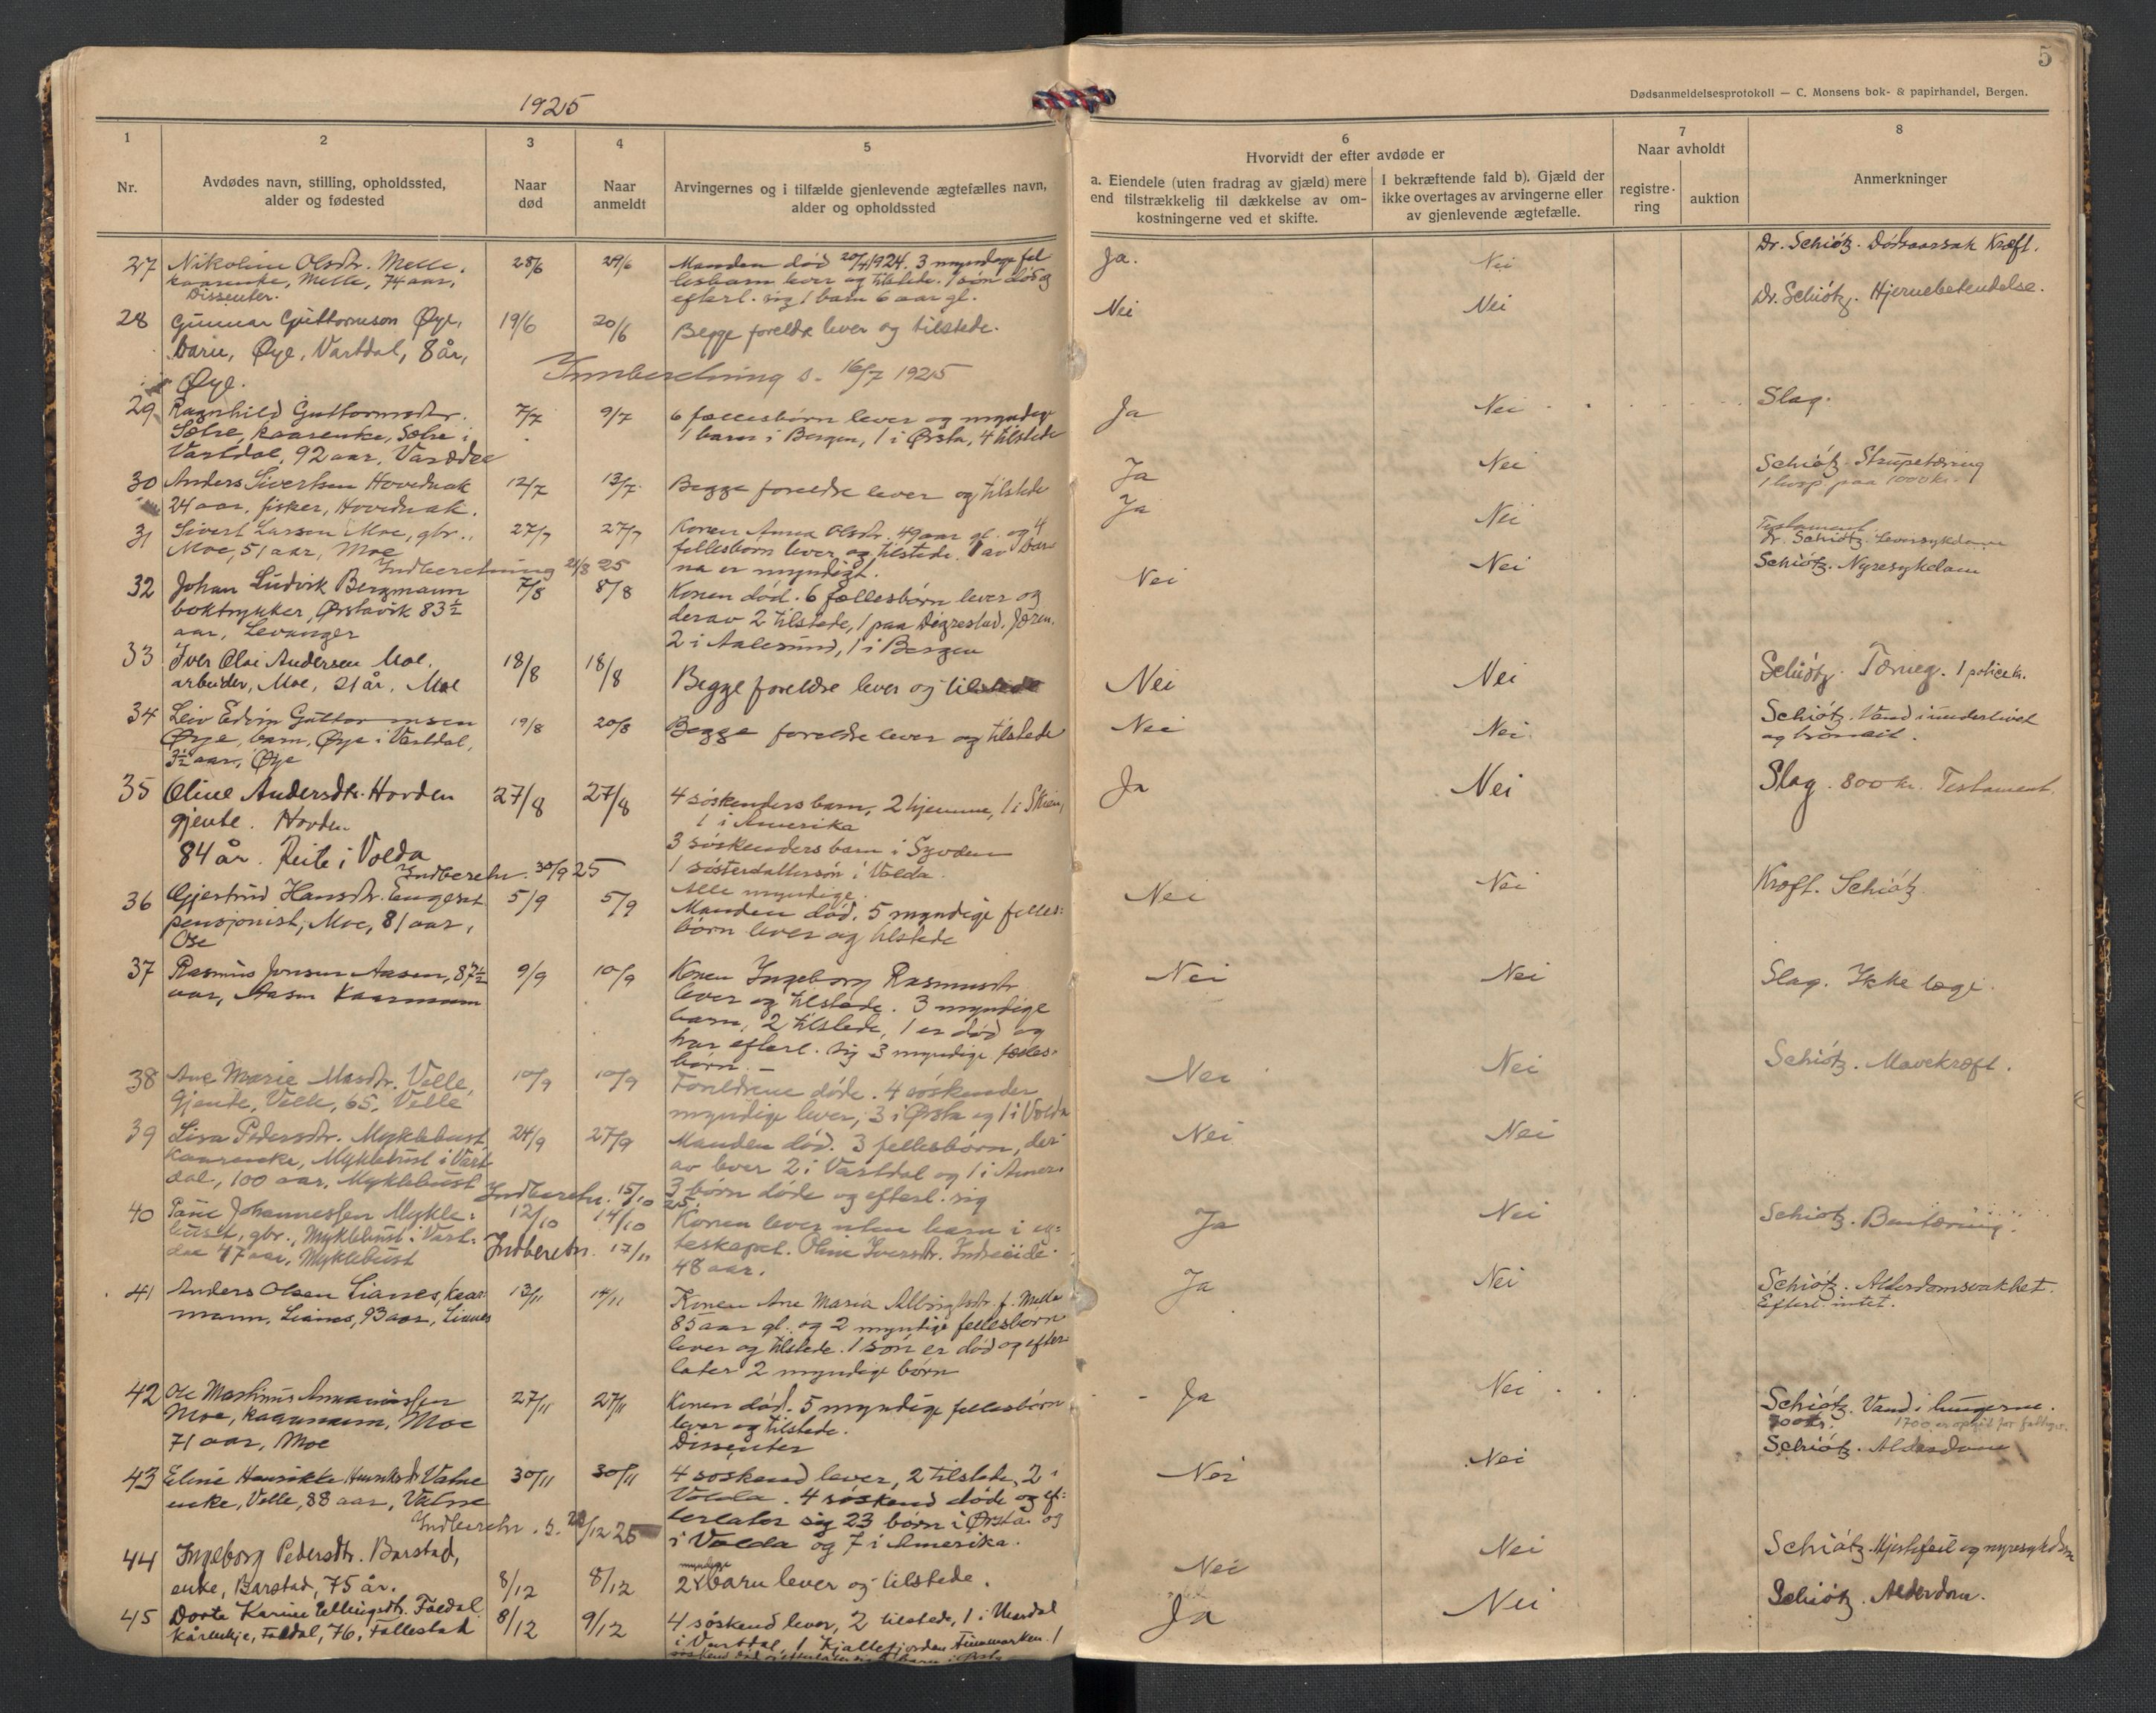 5
Dødsanmeldelsesprotokoll — C. Monsens bok- & papirhandel, Bergen.
1925
1
2
3
4
5
6
7
8
Nr.
Avdødes navn, stilling, opholdssted,
alder og fødested
Naar
død
Naar
anmeldt
Arvingernes og i tilfælde gjenlevende ægtefælles navn,
alder og opholdssted
Hvorvidt der efter avdøde er
a. Eiendele (uten fradrag av gjæld) mere
end tilstrækkelig til dækkelse av om-
kostningerne ved et skifte.
I bekræftende fald b). Gjæld der
ikke overtages av arvingerne eller
av gjenlevende ægtefælle.
Naar avholdt
registre-
ring
auktion
Anmerkninger
27 Nikoline Olsdtr. Melle, 28/6 29/6 Manden død 20/4 1924. 3 myndige fel Ja. Nei Dr. Schiötz. Dødsaarsak Kræft.
kaarenke, Melle, 74 aar, lesbarn lever og tilstede. 1 søn død og
Dissenter. efterl. sig 1 barn 6 aar gl.
28 Gunnar Guttormson Øye, 19/6 20/6 Begge foreldre lever og tilstede. Nei Nei Dr. Schiötz. Hjernebetendelse.
barn, Øye, Vartdal, 8 år,
Øye.
Innberetning s. 16/7 1925
29 Ragnhild Guttormsdtr. 7/7 9/7 6 fællesbörn lever og myndig Ja Nei Slag.
Sætre, kaarenke, Sætre i 1 barn i Bergen, 1 i Ørsta, 4 tilstede
Vartdal, 92 aar,
30 Anders Sivertsen Hovdenak 12/7 13/7 Begge foreldre lever og tilstede Ja Nei Schiötz. Strupetæring
24 aar, fisker, Hovdenak. paa 1000 kr.
31 Sivert Larsen Moe, gbr., 27/7 27/7 Konen Anna Olsdtr. 49 aar gl. og 4 Ja Nei Testament
Moe, 51 aar, Moe fellesborn lever og tilstede. 1 av bar Dr. Schiötz. Leversykdom
na er myndigt.
Indberetning 21/8 25
32 Johan Ludvik Bergmann 7/8 8/8 Konen död. 6 fællesbörn lever og Nei Nei Schiötz. Nyresykdom
boktrykker, Ørstavik 83½ derav 2 tilstede, 1 paa Jæren.
aar, Levanger 2 i Aalesund, 1 i Bergen
33 Iver Olai Andersen Moe. 18/8 18/8 Begge foreldre lever og tilstede Nei Nei Schiötz. Tæring. 1 police kr.
arbeider, Moe, 21 år, Moe
34 Leiv Edvin Guttormsen 19/8 20/8 Begge foreldre lever og tilstede Nei Nei. Schiötz. Vand i underlivet
Øye, barn, Øye i Vartdal, og
3½ aar, Øye
35 Oline Andersdtr. Hovden 27/8 27/8 4 söskenders barn, 2 hjemme, 1 i Skien, Ja Nei Slag. 800 kr. Testament.
gjente. Hovden 1 i Amerika
84 år. Reite i Volda 3 söskenders barn i Syvden
1 sösterdattersön i Volda.
Alle myndige.
Indberetn. 30/9 25
36 Gjertrud Hansdtr. Engeset 5/9 5/9 Manden död. 5 myndige felles- Nei Nei Kræft. Schiötz
pensjonist, Moe, 81 aar, börn lever og tilstede
Ose
37 Rasmus Jonsen Aasen, 87½ 9/9 10/9 Konen Ingeborg Rasmusdtr Nei Nei Slag. Ikke læge.
aar, Aasen Kaarmann lever og tilstede. 3 myndige
barn, 2 tilstede, 1 er död og
har efterl. sig 3 myndige felles-
börn. —
38 Ane Marie Masdtr. Velle, 10/9 10/9 Foreldrene döde. 4 söskender Nei Nei Schiötz. Mavekræft.
Gjente, Velle, 65, Velle myndige lever, 3 i Ørsta og 1 i Volda
39 Lisa Pedersdtr. Myklebust 24/9 27/9 Manden död. 3 fellesbörn, der- Nei Nei
Kaarenke, Myklebust i Vart- av lever 2 i Vartdal og 1 i Amer.
dal, 100 aar, Myklebust 3 börn döde og efterl. sig
Indberetn. 15/10 25.
40 Johannessen Mykle- 12/10 14/10 Konen lever uten barn i eg- Ja Nei Schiötz. Bentæring.
bust, gbr., Myklebust i Vart- teskapet. Oline Iversdtr.
dal 47 aar, Myklebust 48 aar.
Indberetn. 17/11
41 Anders Olsen Lianes, kaar- 13/11 14/11 Konen Ane Maria Albrigtsdtr. f. Melle Ja Nei Schiötz. Alderdomsvakhet.
mann, Lianes, 93 aar, Lianes 85 aar gl. og 2 myndige fellesborn Efterl. intet.
lever og tilstede. 1 sön er död og efter-
later 2 myndige börn
42 Ole Martinus Ananiassen 27/11 27/11 Konen död. 5 myndige fellesbörn Ja Nei Schiötz. Vand i lungerne.
Moe, kaarmann, Moe lever og tilstede. 700 kr.
71 aar, Moe Dissenter
43 Eline Henrikke Henriksdtr. Vatne 30/11 30/11 4 soskend lever, 2 tilstede, 2 i Nei Nei Schiötz. Alderdom
enke, Velle, 88 aar, Vatne Volda. 4 söskend döde og ef-
terlater sig 23 börn i Ørsta og
i Volda og 7 i Amerika.
Indberetn. s. /12 25
44 Ingeborg Pedersdtr. Barstad, 8/12 8/12 2 myndige barn lever og tilstede. Nei Nei Schiötz. Hjertefeil og nyresykdom
enke, Barstad, 75 år.
45 Dorte Karine Ellingsdtr. Foldal 8/12 9/12 4 söskend lever, 2 tilstede, 1 i Ja Nei Schiötz. Alderdom.
kårenkje, Foldal, 76, i Vartdal, 1 Kjøllefjorden Finnmarken. 1